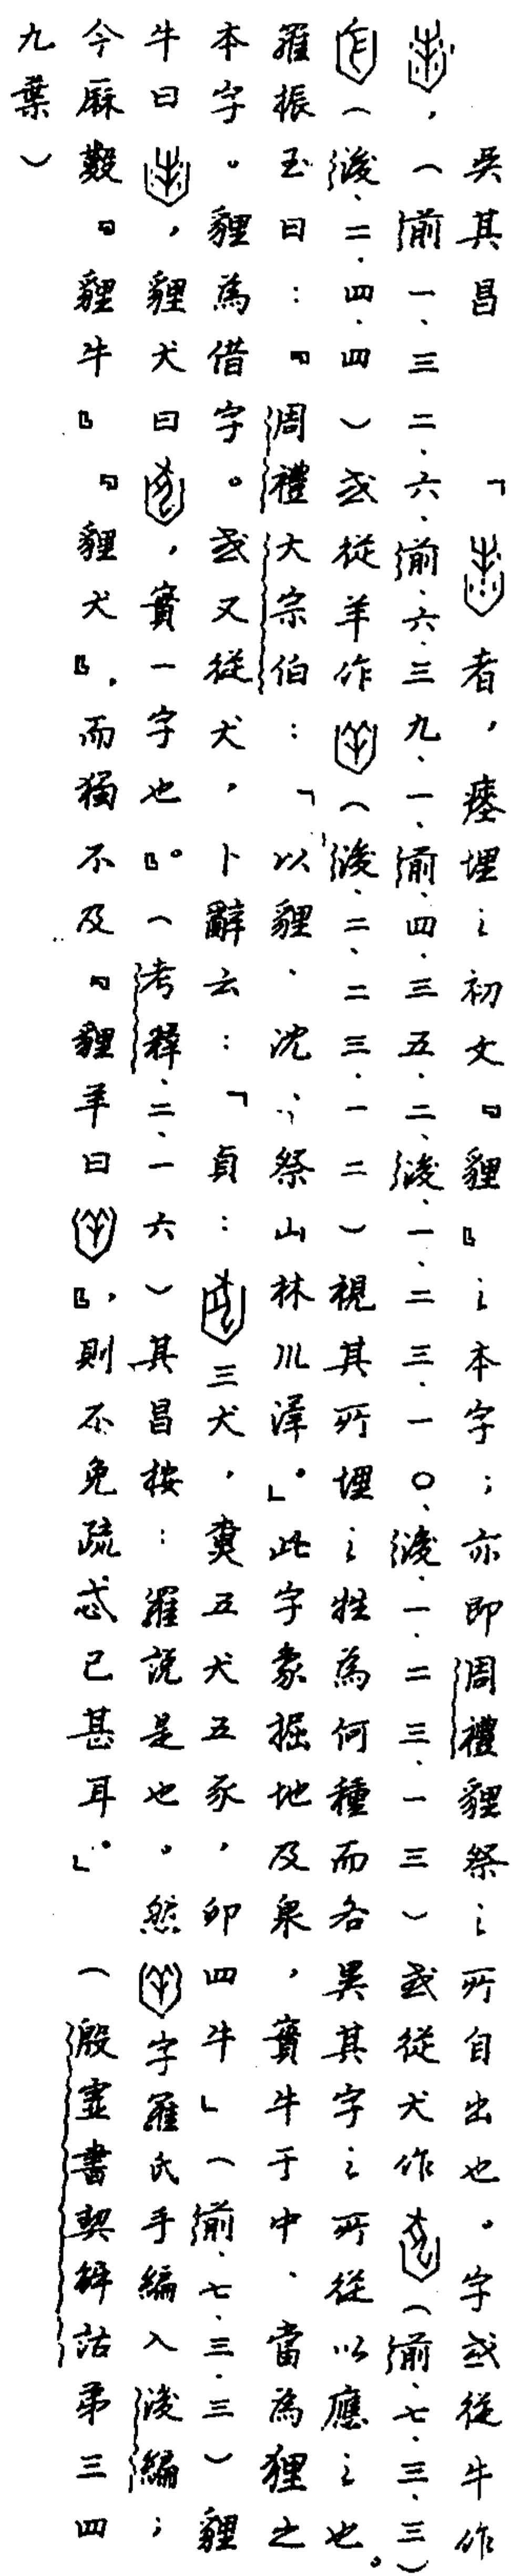 吳其昌 「者，瘞埋之初文『貍』之本字；亦即周禮貍祭之所自出也。字或從牛作
，（前一、三二、六、前、六、三九、一、前、四、三五、二、後、一、二三、一〇、後、一、二三、一三）或從犬作（前、七、三、三）
（後、二、四、四）或從羊作（後、二、二三、一二）視其所埋之牲為何種而各異其字之所從以應之也。
羅振玉曰：『周禮大宗伯：「以貍、沈、祭山林川澤。」此字象掘地及泉，實牛于中、當為狸之
本字。貍為借字。或又從犬，卜辭云：「貞：三犬，𤉡五犬五豕，卯四牛」（前、七、三、三）貍
牛曰，貍犬曰，實一字也』。（考釋、二、一六）其昌按：羅說是也。然字羅氏手編入後編；
今麻㪤『貍牛』『貍犬』，而獨不及『貍羊曰』，則不免疏忒已甚耳」。（殷虛書契解詁第三四
九葉）